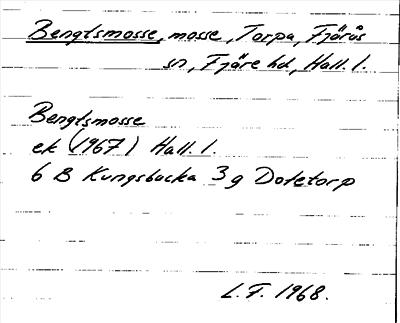 Bengtsmosse, mosse, Torpa, Fjärås
sn, Fjäre hd, Hall. l.
Bengtsmosse
ek (1967) Hall. l.
6 B Kungsbacka 3g Dotetorp
L.F. 1968.